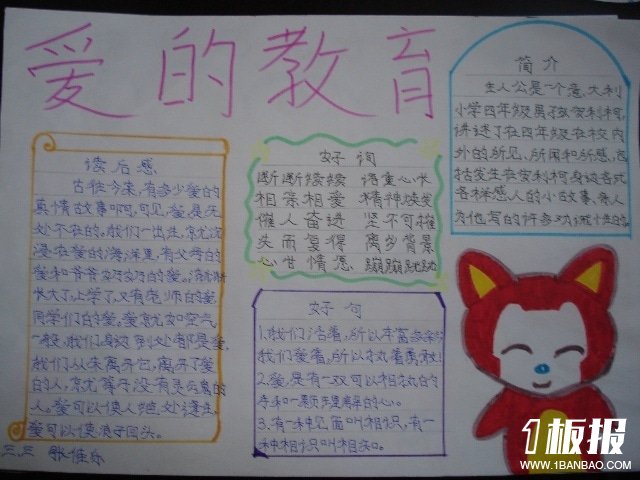 爱的教育
简介
主人公是一个意大利
小学四年级男孩安利柯,
讲述了在四年级在校内
外的所见、所闻和所感,包
括发生在安利柯身边各式
各样感人的小故事,亲人
为他写的许多劝诫性的
读后感
古往今来,有多少爱的
真情故事啊,可见,爱是无
处不在的。我们一出生,就沉
浸在爱的海洋里,有父母的
爱和爷爷奶奶的爱。渐渐
长大了,上学了,又有老师的爱,
同学们的爱。爱就如空气
一般,我们身边到处都是爱,
我们从未离开它,离开了爱
的人,就等于没有灵魂的
人。爱可以使人绝处逢生,
爱可以使浪子回头。
好词
断断续续 语重心长
相亲相爱 精神焕发
催人奋进 坚不可摧
失而复得 离乡背景
心甘情愿 蹦蹦跳跳
好句
1.我们活着,所以丰富多彩
我们爱着,所以执着勇敢
2.爱,是有一双可以相执的
手和一颗步理解的心。
3.有一种见面叫相识,有一
种相识叫相知。
三.三 张佳乐
1板报
WWW.1BANBAO.COM